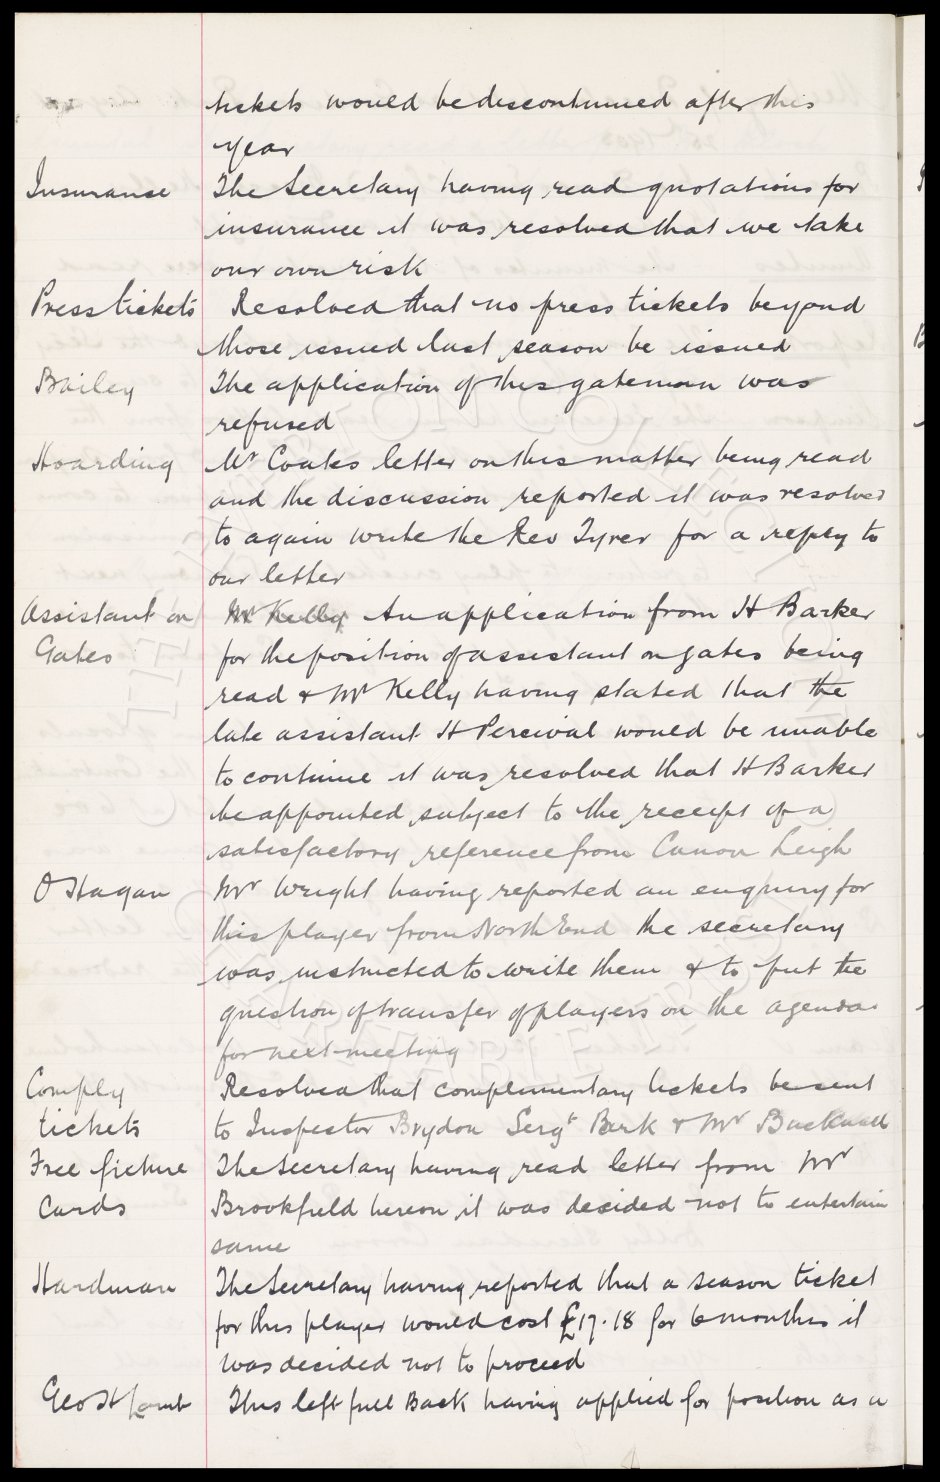 tickets would be discontinued after this
year
Insurance The Secretary having read quotations for
insurance it was resolved that we take
our own risk
Press tickets Resolved that no press tickets beyond
those issued last season be issued
Bailey The application of this gateman was
refused
Hoarding Mr Coates letter on this matter being read
and the discussion reported it was resolved
to again write the Rev Tyrer for a reply to
our letter
Assistant on Mr Kelly An application from H Barker
Gates for the position of assistant on gates being
read & Mr Kelly having stated that the
late assistant H Percival would be unable
to continue it was resolved that H Barker
be appointed subject to the receipt of a
satisfactory reference from Canon Leigh
O Hagan Mr Wright having reported an enquiry for
this player from North End the secretary
was instructed to write them & to put the
question of transfer of players on the agenda
for next meeting
Comply Resolved that complimentary tickets be sent
tickets to Inspector Brydon Sergt Berk & Mr
Free picture The Secretary having read letter from Mr
Cards Brookfield hereon it was decided not to entertain
same
Hardman The Secretary having reported that a season ticket
for this player would cost £17.18 for 6 months it
was decided not to proceed
Geo H Lamb This left full Back having applied for position as a